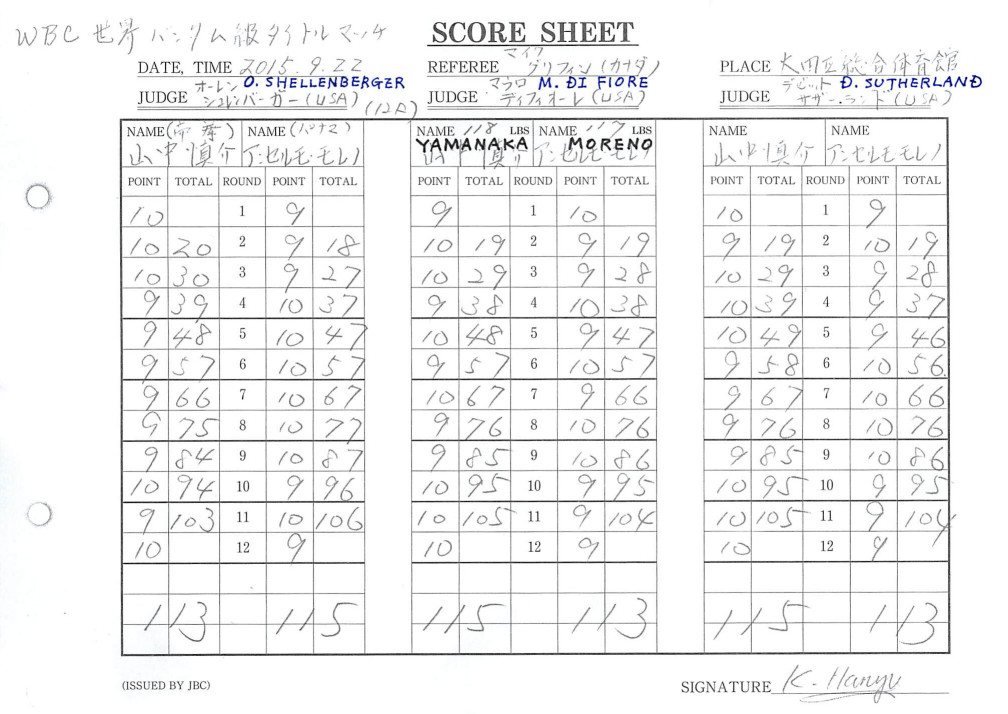 WBC 世界バンタム級タイトルマッチ
SCORE SHEET
DATE, TIME 2015.9.22
REFEREE マイク グリフィン(カナダ)
PLACE 大田区総合体育館
JUDGE オーレン O. SHELLENBERGER シェレンバーガー(USA) (12R)
JUDGE マウロ M. DI FIORE ディフィオーレ(USA)
JUDGE デビット D. SUTHERLAND サザーランド(USA)
NAME (帝拳) NAME (パナマ) NAME 118 LBS NAME 117 LBS NAME NAME
YAMANAKA MORENO
山中慎介 アンセルモ モレノ 山中慎介 アンセルモ モレノ 山中慎介 アンセルモ モレノ
POINT TOTAL ROUND POINT TOTAL POINT TOTAL ROUND POINT TOTAL POINT TOTAL ROUND POINT TOTAL
10 1 9 9 1 10 10 1 9
10 20 2 9 18 10 19 2 9 19 9 19 2 10 19
10 30 3 9 27 10 29 3 9 28 10 29 3 9 28
9 39 4 10 37 9 38 4 10 38 10 39 4 9 37
9 48 5 10 47 10 48 5 9 47 10 49 5 9 46
9 57 6 10 57 9 57 6 10 57 9 58 6 10 56
9 66 7 10 67 10 67 7 9 66 9 67 7 10 66
9 75 8 10 77 9 76 8 10 76 9 76 8 10 76
9 84 9 10 87 9 85 9 10 86 9 85 9 10 86
10 94 10 9 96 10 95 10 9 95 10 95 10 9 95
9 103 11 10 106 10 105 11 9 104 10 105 11 9 104
10 12 9 10 12 9 10 12 9
113 115 115 113 115 113
(ISSUED BY JBC)
SIGNATURE K. Hanyu